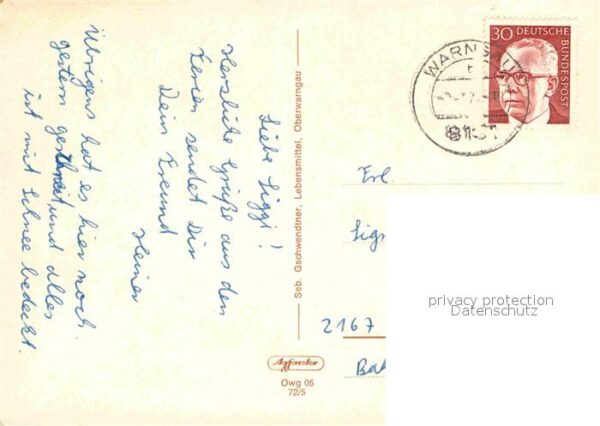 Liebe Siggi!
Herzliche Grüße aus den
Ferien sendet Dir
Dein Freund
Heiner
Übrigens hat es hier noch
gestern geschneit und alles
ist mit Schnee bedeckt.
Seb. Gschwendtner, Lebensmittel, Oberwarngau
Agfacolor
Owg 05
72/5
30 DEUTSCHE BUNDESPOST
WARNGAU
Frl
Sig
2167
privacy protection
Datenschutz